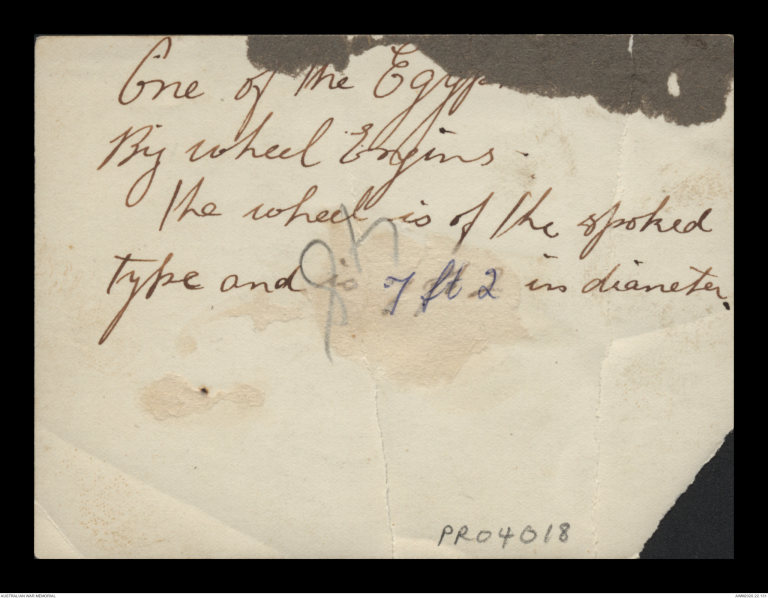 One of the Egyp
Big wheel Engins.
the wheel is of the spoked
type and is 7 ft 2 in dianeter.
PR04018
AUSTRALIAN WAR MEMORIAL